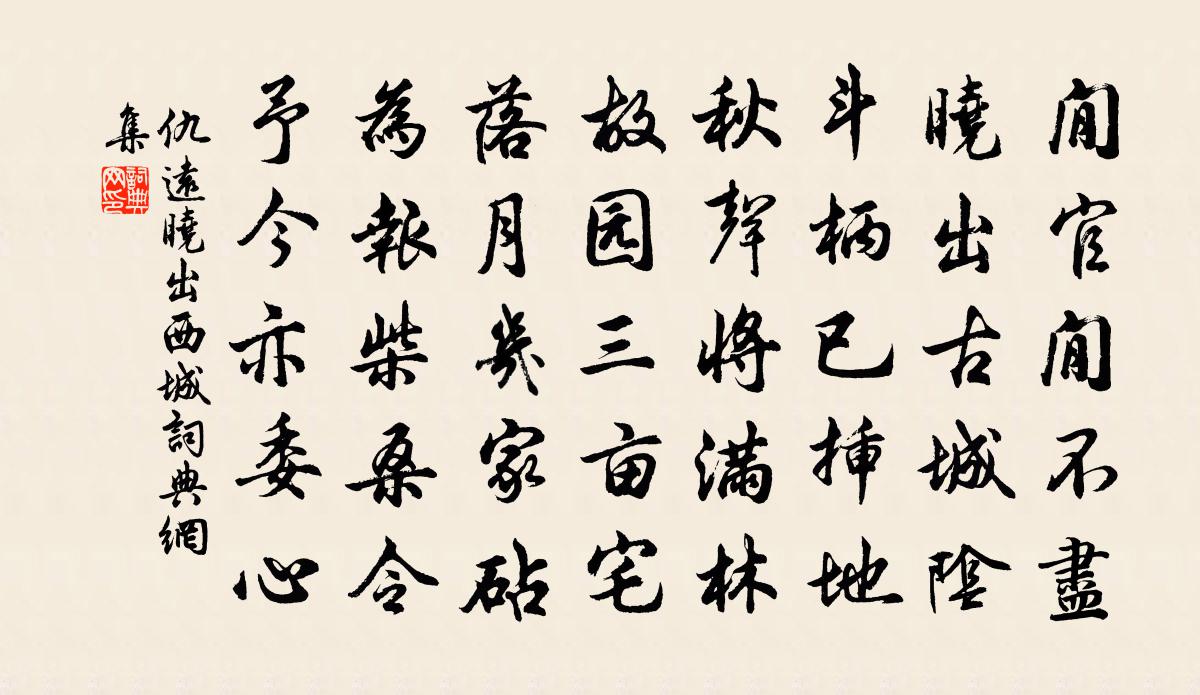 閒官閒不盡
曉出古城陰
斗柄已挿地
秋聲將滿林
故园三亩宅
落月幾家砧
為報柴桑令
予今亦委心
仇遠曉出西城詞典網
集
詞典网印